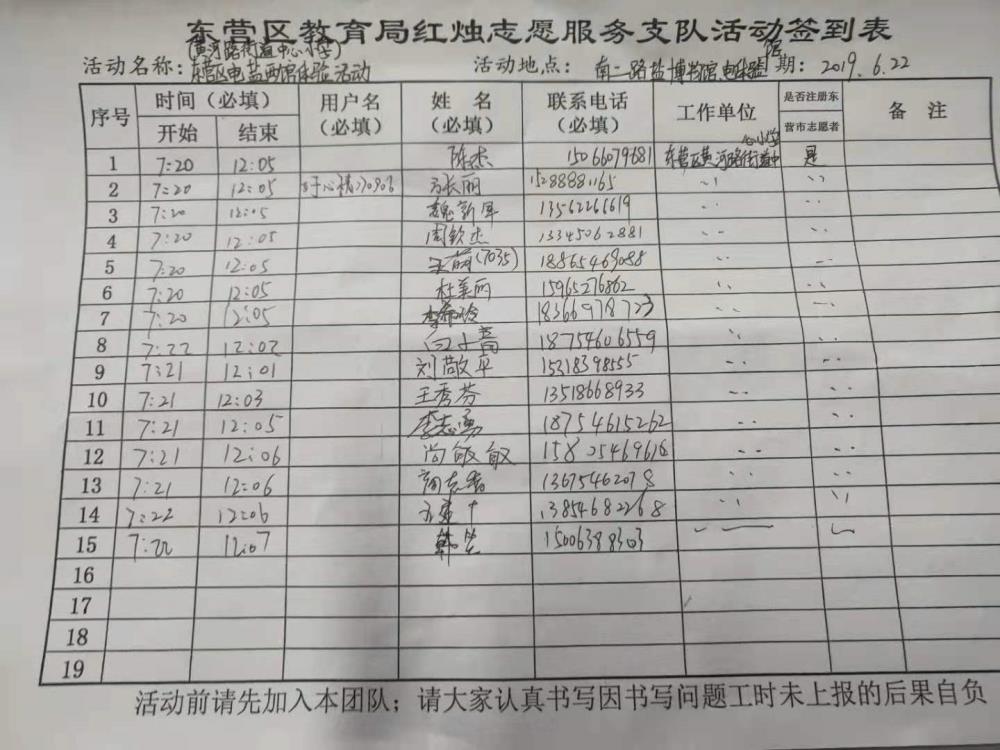 东营区教育局红烛志愿服务支队活动签到表
(黄河路街道中心小学)
活动名称:东营区电盐两馆体验活动 活动地点:南二路盐博物馆电体验馆 日期:2019.6.22
序号 时间(必填) 用户名(必填) 姓 名(必填) 联系电话(必填) 工作单位 是否注册东营市志愿者 备 注
开始 结束
1 7:20 12:05 陈杰 15066079681 东营区黄河路街道中心小学 是
2 7:20 12:05 张丽 15288881165 〃 〃
3 7:20 12:05 魏新军 13562266619 〃 〃
4 7:20 12:05 周钦杰 13345062881 〃 〃
5 7:20 12:05 王萌(7035) 18865469088 〃 〃
6 7:20 12:05 杜美丽 15965276862 〃 〃
7 7:20 12:05 18366978723 〃 〃
8 7:22 12:02 18754606559 〃 〃
9 7:21 12:01 刘敬卫 15318398555 〃 〃
10 7:21 12:03 王秀芬 13518668933 〃 〃
11 7:21 12:05 李志勇 18754615262 〃 〃
12 7:21 12:06 尚敏敏 15805469616 〃 〃
13 7:21 12:06 13675462078 〃 〃
14 7:22 12:06 13854682268 〃 〃
15 7:22 12:07 韩笑 15006388303
16
17
18
19
活动前请先加入本团队;请大家认真书写因书写问题工时未上报的后果自负